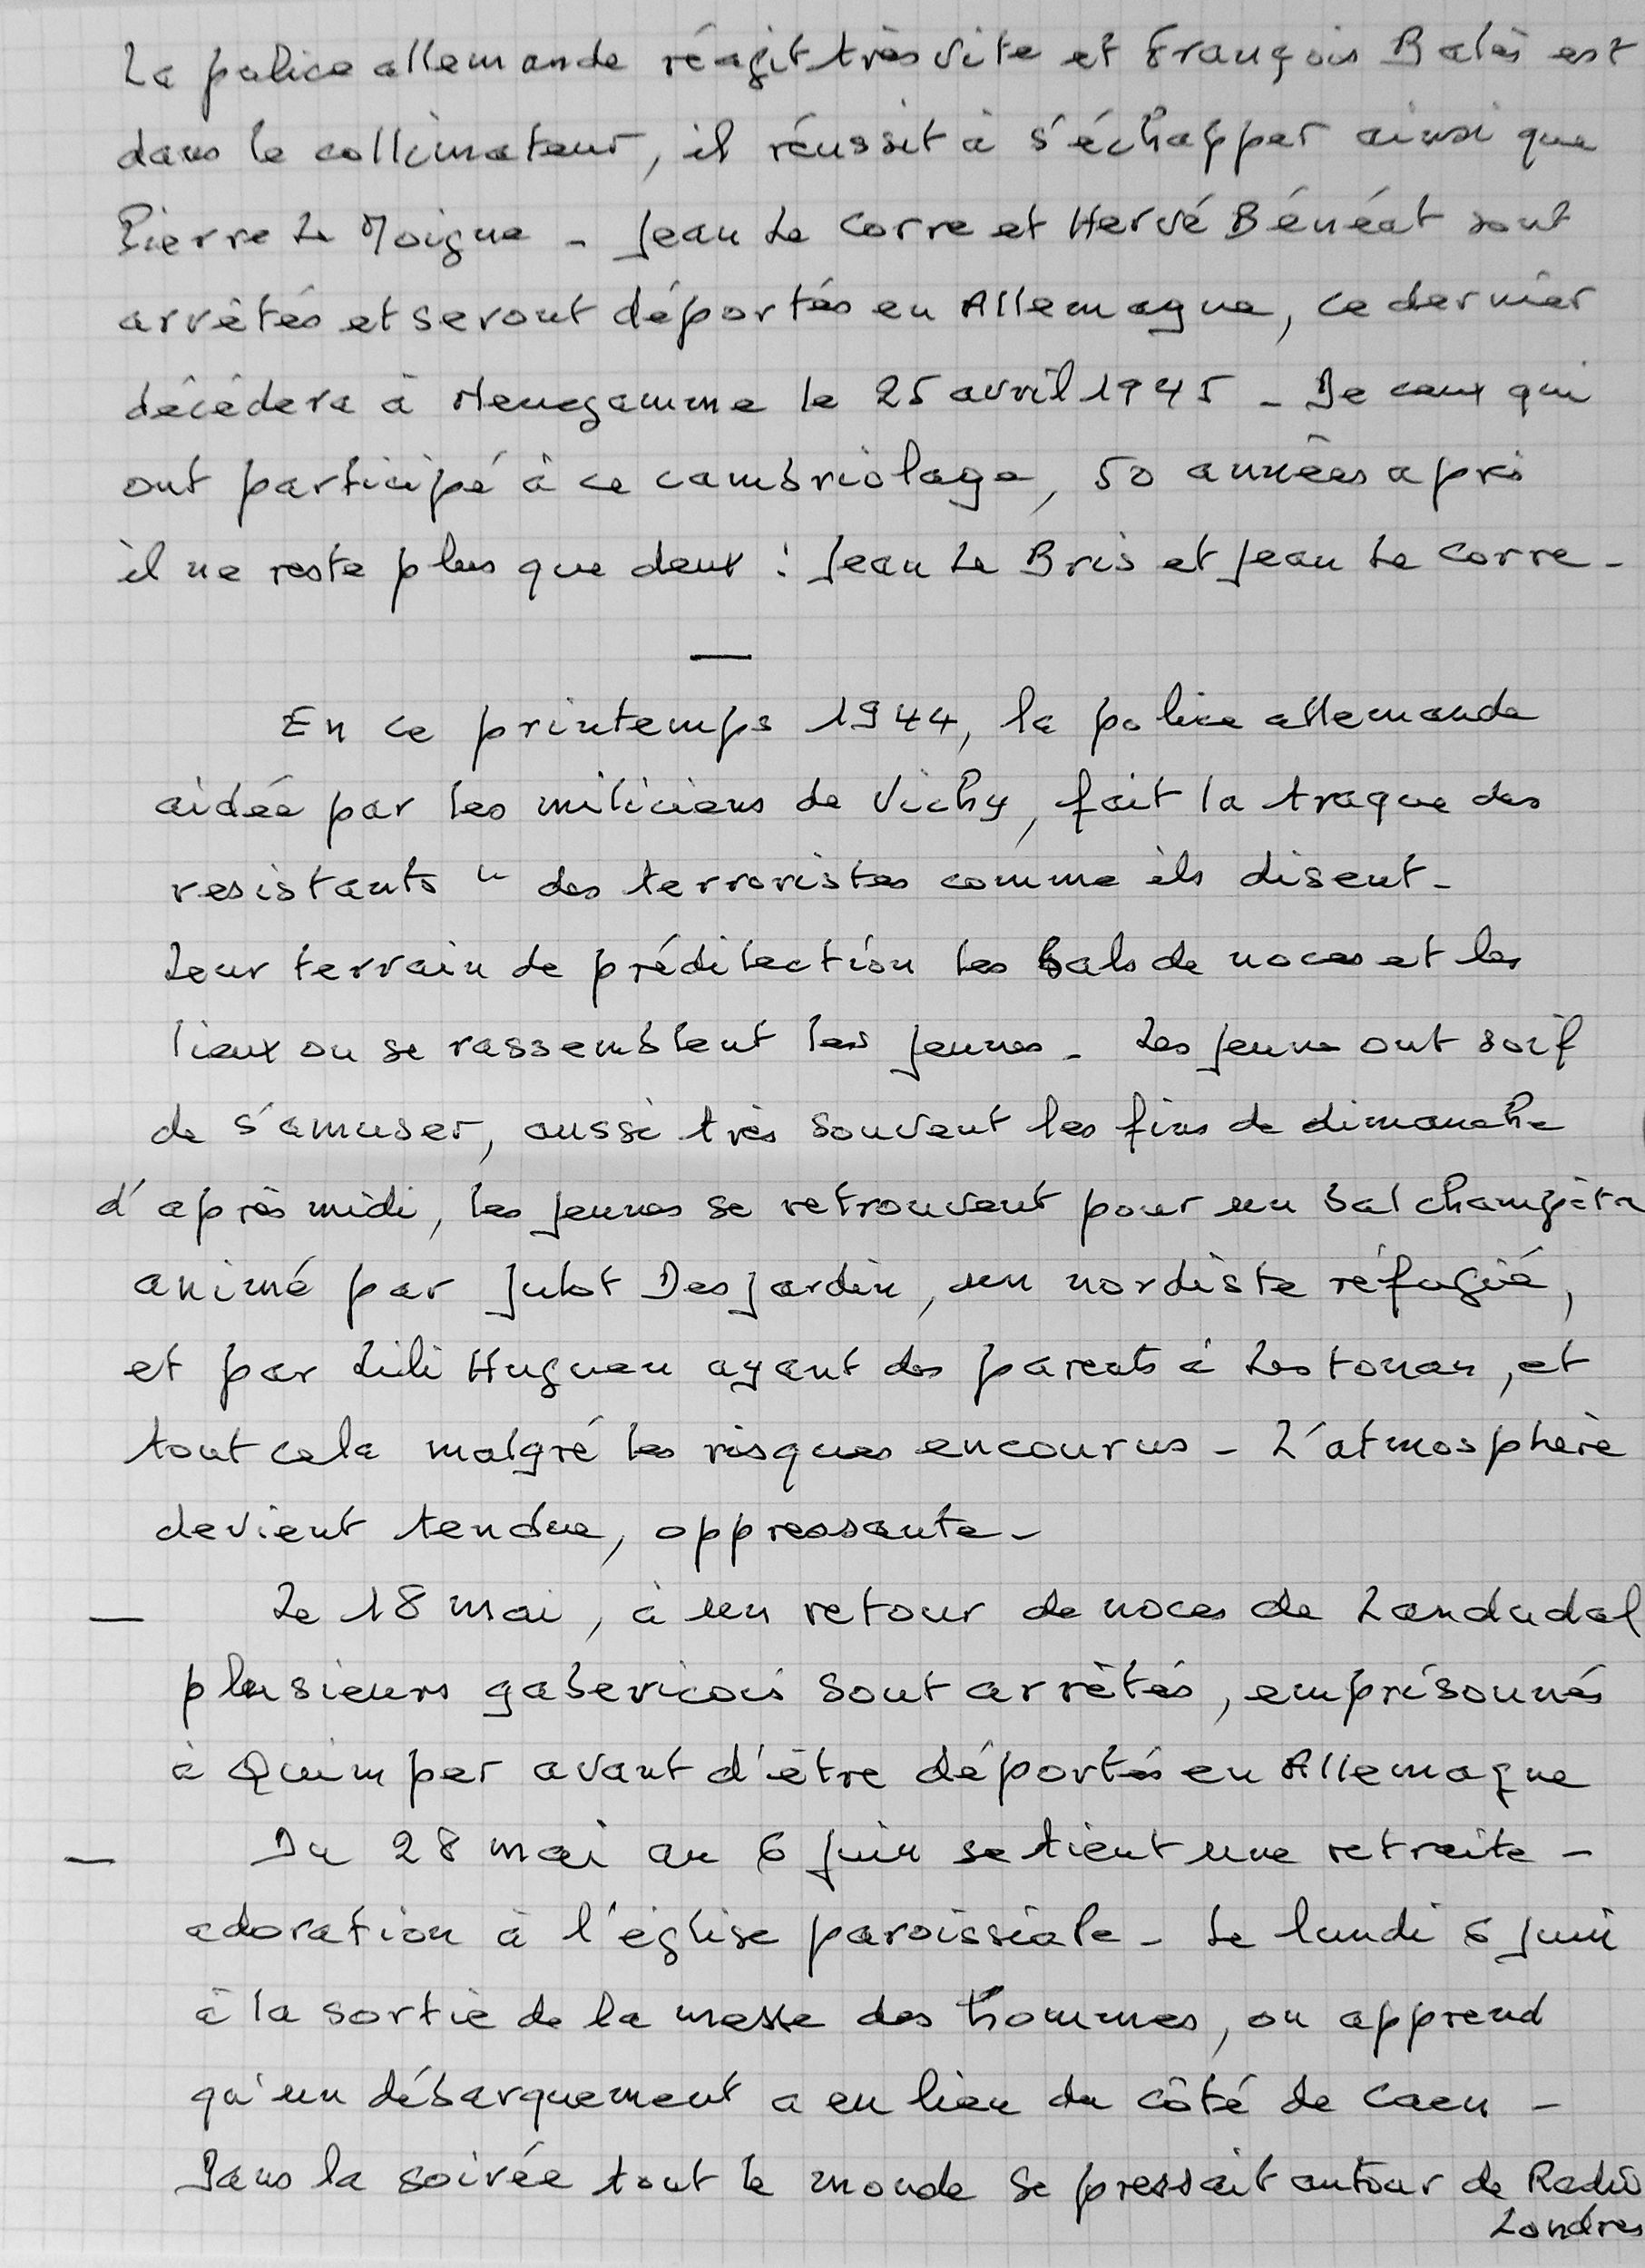 La police allemande réagit très vite et François Balès est
dans le collimateur, il réussit à s'échapper ainsi que
Pierre Le Moigne - Jean Le Corre et Hervé Bénéat sont
arrêtés et seront déportés en Allemagne, ce dernier
décèdera à Menegamme le 25 avril 1945 - De ceux qui
ont participé à ce cambriolage, 50 années après
il ne reste plus que deux : Jean Le Bris et Jean Le Corre -
—
En ce printemps 1944, la police allemande
aidée par les miliciens de Vichy, fait la traque des
resistants " des terroristes comme ils disent -
Leur terrain de prédilection les bals de noces et les
lieux ou se rassemblent les jeunes - Les jeunes ont soif
de s'amuser, aussi très souvent les fins de dimanche
d'après midi, les jeunes se retrouvent pour un bal champêtre
animé par Julot Desjardin, un nordiste réfugié,
et par Lili Huguen ayant des parents à Lestonan, et
tout cela malgré les risques encourus - L'atmosphère
devient tendue, oppressante -
— Le 18 mai, à un retour de noces de Landudal
plusieurs gabericois sont arrêtés, emprisonnés
à Quimper avant d'être déportés en Allemagne
— Du 28 mai au 6 juin se tient une retraite -
adoration à l'église paroissiale - Le lundi 6 juin
à la sortie de la messe des hommes, on apprend
qu'un débarquement a eu lieu du côté de Caen -
Dans la soirée tout le monde se pressait autour de Radio
Londres